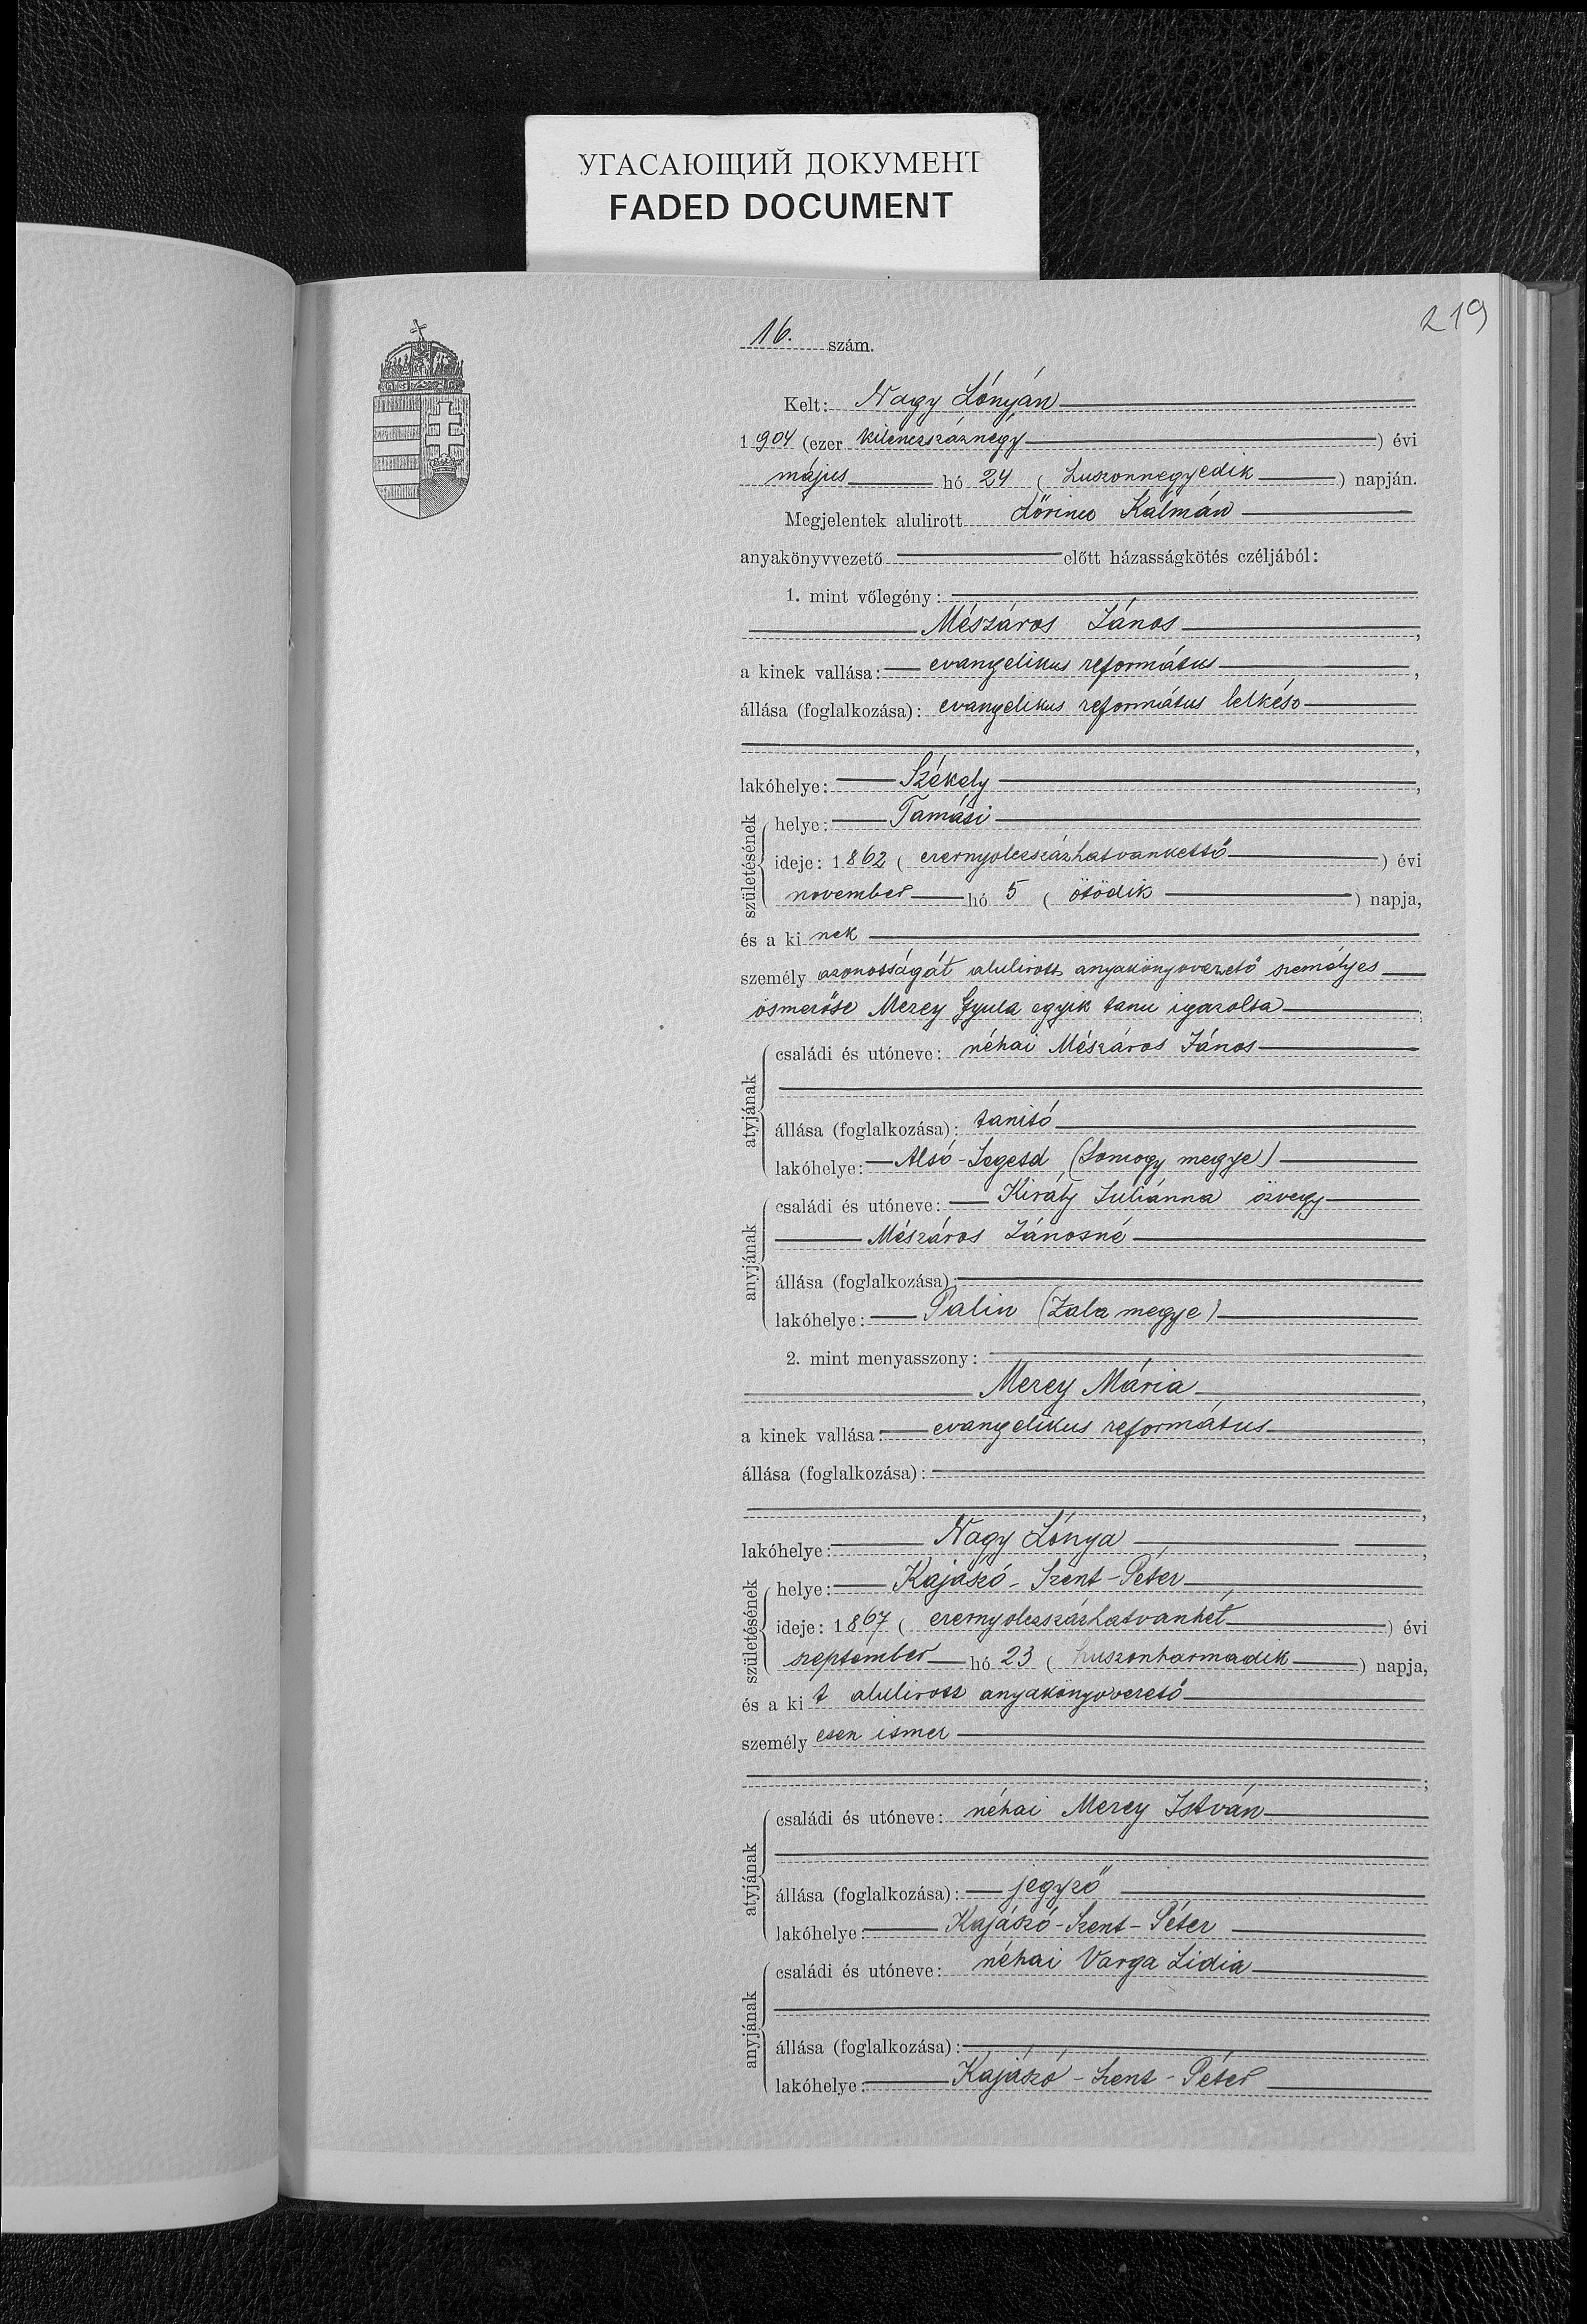 УГАСАЮЩИЙ ДОКУМЕНТ
FADED DOCUMENT
219
16. szám.
Kelt: Nagy Lónyán
1904 (ezer kilenczszáznégy) évi
május hó 24 (huszonnegyedik) napján.
Megjelentek alulirott Lőrincz Kálmán
anyakönyvvezető előtt házasságkötés czéljából:
1. mint vőlegény:
Mészáros János,
a kinek vallása: evangelikus református,
állása (foglalkozása): evangelikus református lelkész
,
lakóhelye: Székely,
születésének
helye: Tamási
ideje: 1862 (ezernyolczszázhatvankettő) évi
november hó 5 (ötödik) napja,
és a ki nek
személy azonosságát alulirott anyakönyvvezető személyes
ösmerőse Mezey Gyula egyik tanu igazolta;
atyjának
családi és utóneve: néhai Mészáros János
állása (foglalkozása): tanitó
lakóhelye: Alsó-Segesd (Somogy megye)
anyjának
családi és utóneve: Király Juliánna özvegy
Mészáros Jánosné
állása (foglalkozása):
lakóhelye: Palin (Zala megye)
2. mint menyasszony:
Mezey Mária,
a kinek vallása: evangelikus református,
állása (foglalkozása):
,
lakóhelye: Nagy Lónya,
születésének
helye: Kajászó-Szent-Péter
ideje: 1867 (ezernyolczszázhatvanhét) évi
szeptember hó 23 (huszonharmadik) napja,
és a ki t alulirott anyakönyvvezető
személy esen ismer
;
atyjának
családi és utóneve: néhai Mezey István
állása (foglalkozása): jegyző
lakóhelye: Kajászó-Szent-Péter
anyjának
családi és utóneve: néhai Varga Lidia
állása (foglalkozása):
lakóhelye: Kajászó-Szent-Péter